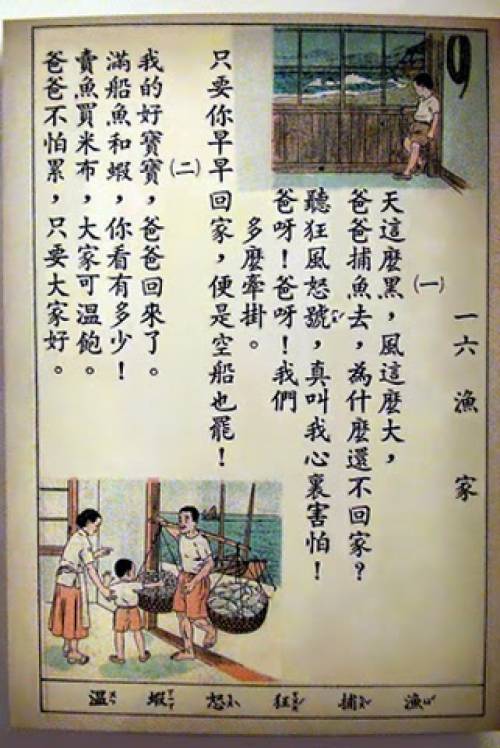 9
一六 漁家
㈠
天這麼黑，風這麼大，
爸爸捕魚去，為什麼還不回家？
聽狂風怒號，真叫我心裏害怕！
爸呀！爸呀！我們
多麼牽掛。
只要你早早回家，便是空船也罷！
㈡
我的好寶寶，爸爸回來了。
滿船魚和蝦，你看有多少！
賣魚買米布，大家可溫飽。
爸爸不怕累，只要大家好。
漁 捕 狂 怒 蝦 溫